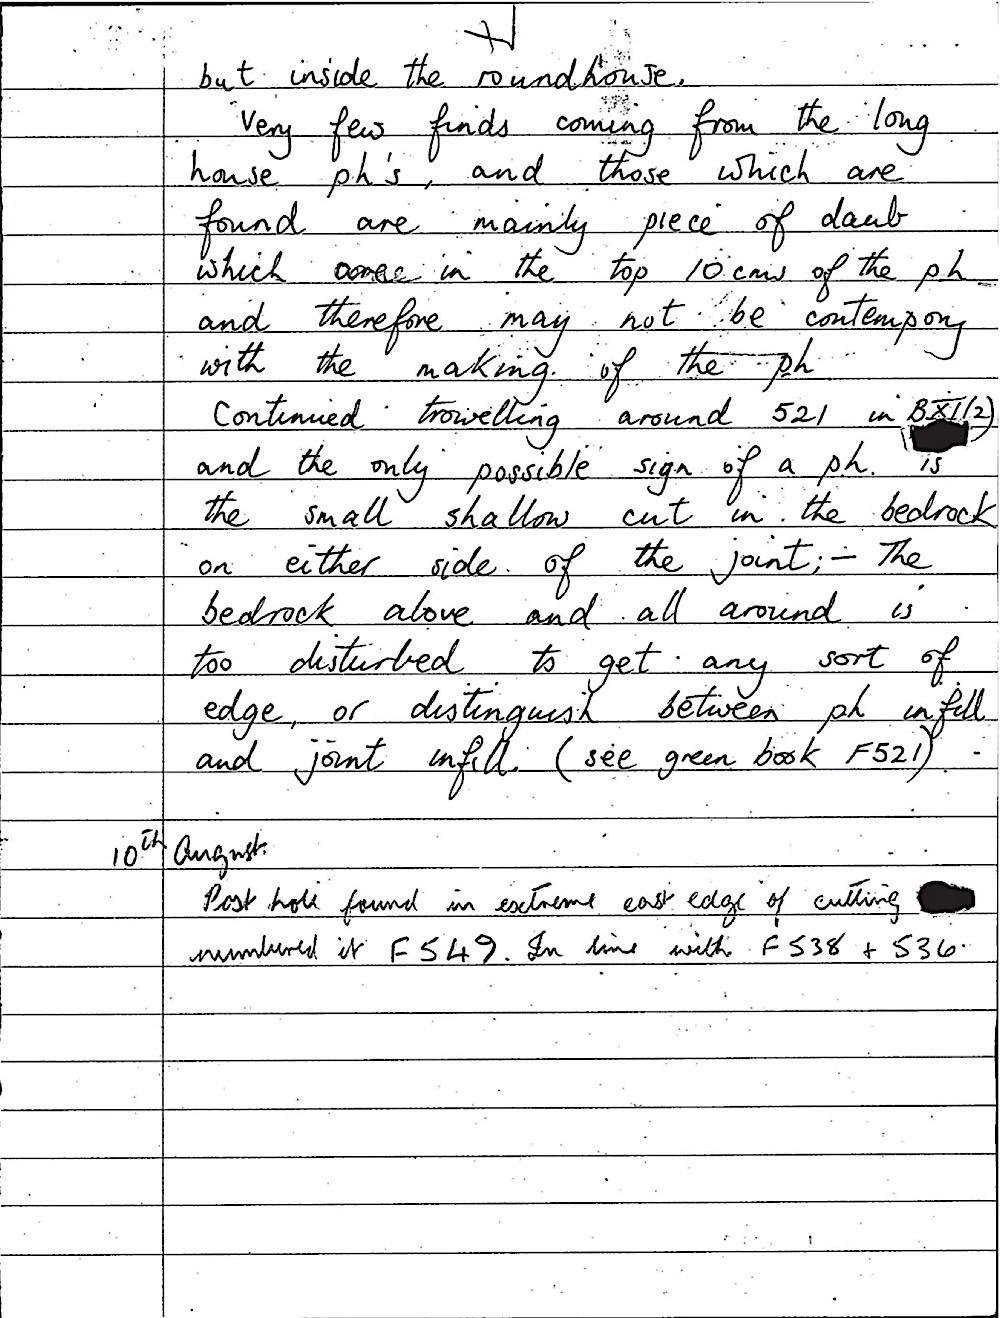 but inside the roundhouse.
Very few finds coming from the long
house ph's, and those which are
found are mainly piece of daub
which in the top 10 cms of the ph
and therefore may not be contempory
with the making of the ph
Continued trowelling around 521 in BXI(2)
and the only possible sign of a ph. is
the small shallow cut in the bedrock
on either side of the joint;— The
bedrock above and all around is
too disturbed to get any sort of
edge, or distinguish between ph infill
and joint infill. (see green book F521)
10th August.
Post hole found in extreme east edge of cutting
numbered it F549. In line with F538 + 536.